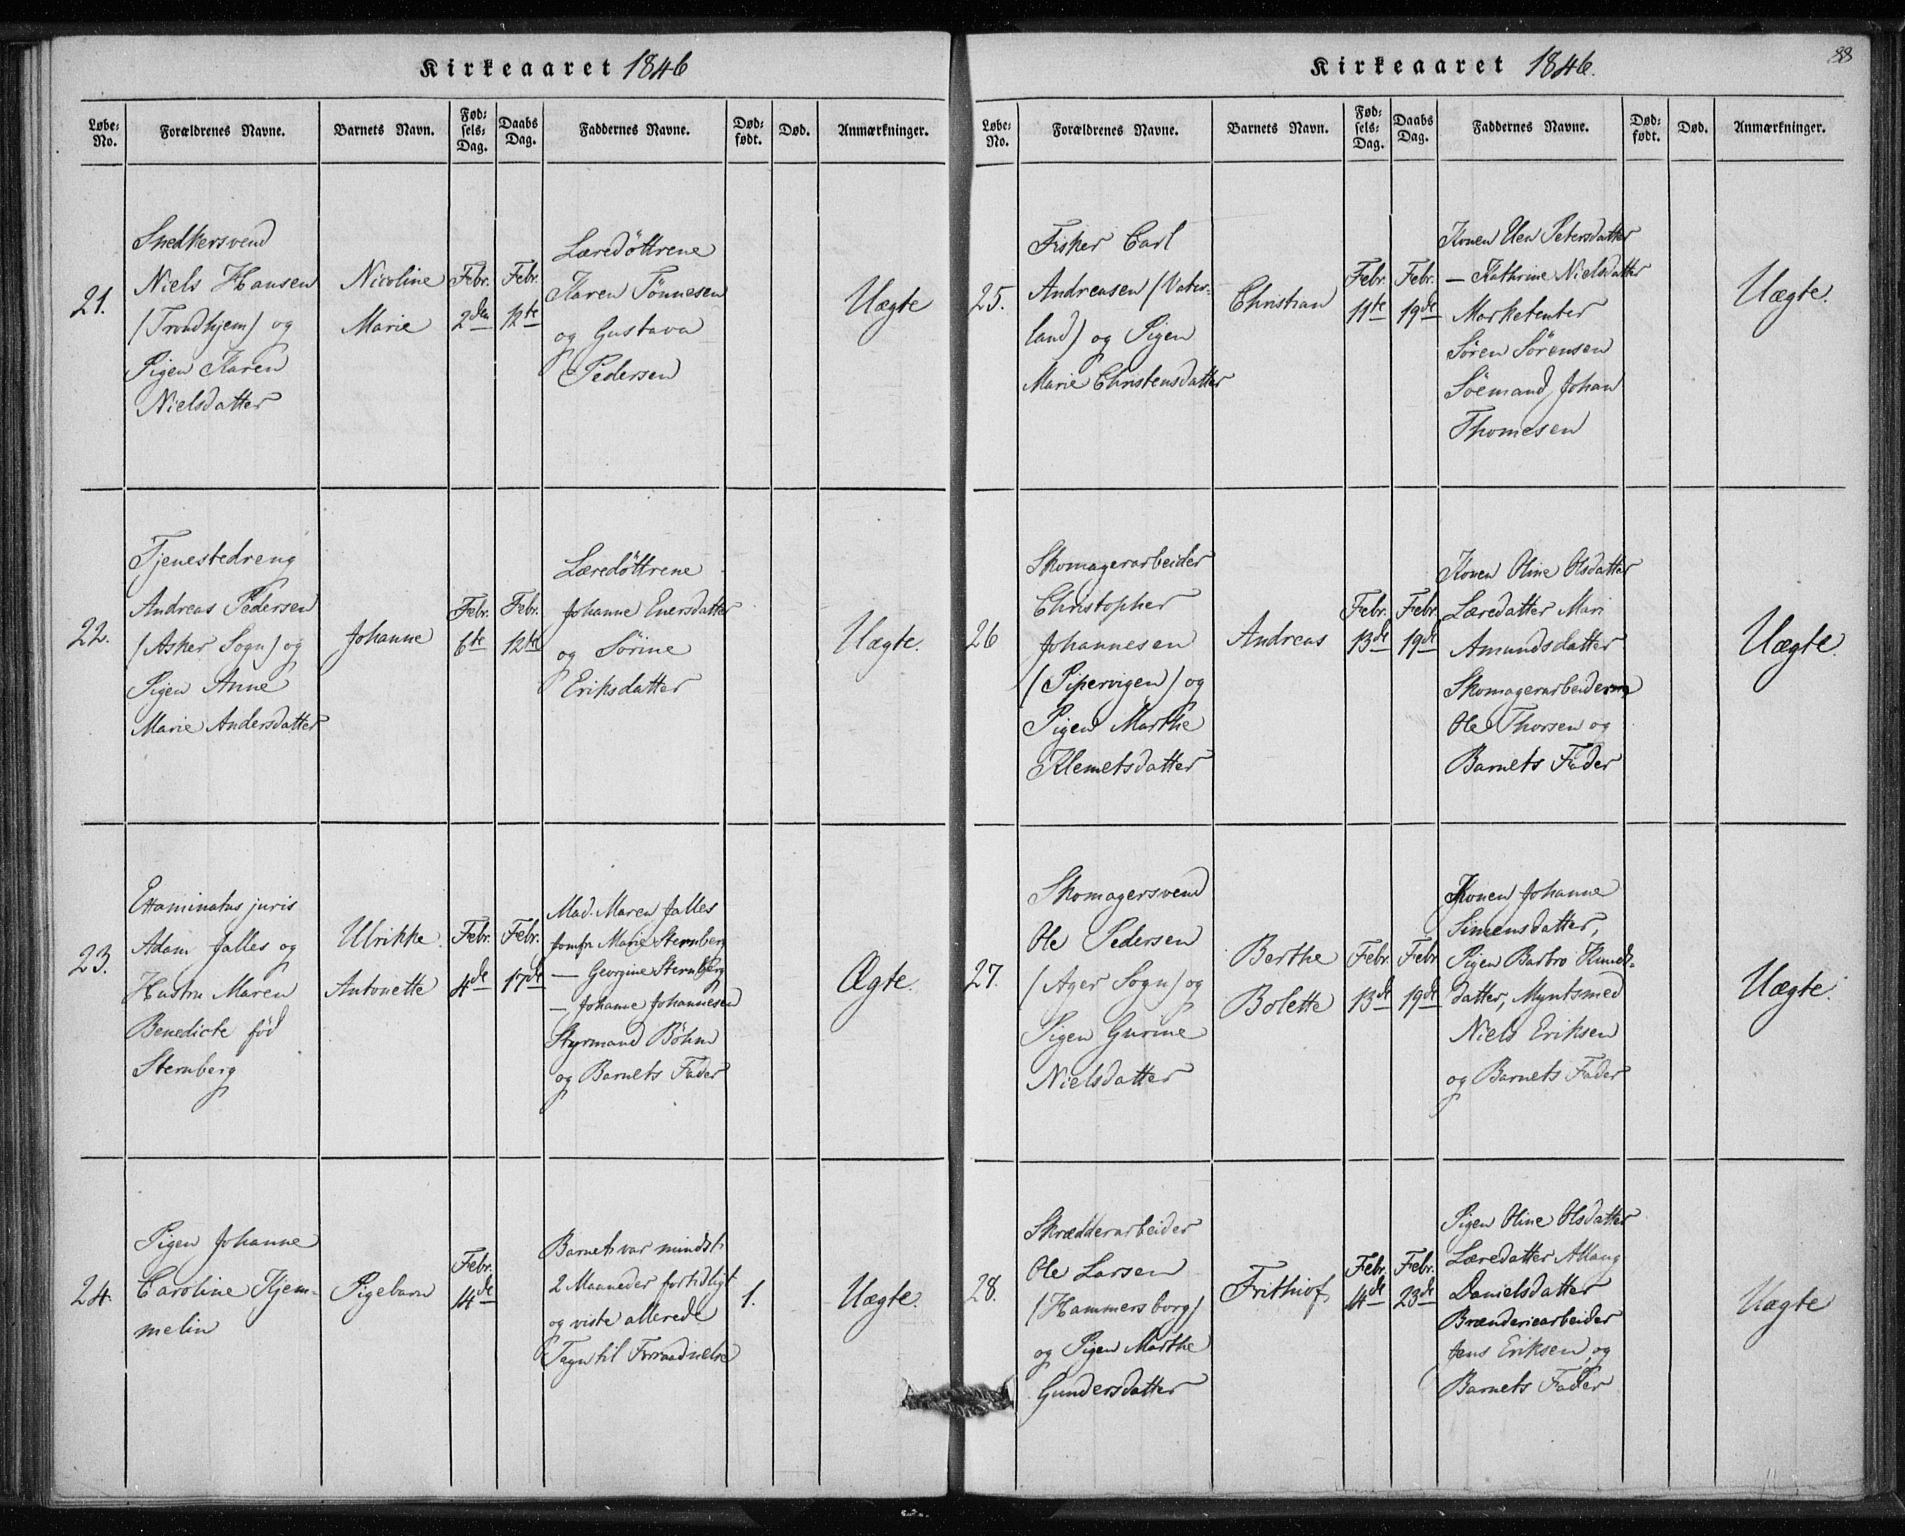 Kirkeaaret 1846
Løbe-No.
Forældrenes Navne.
Barnets Navn.
Fødsels-Dag.
Daabs Dag.
Faddernes Navne.
Dødfødt.
Død.
Anmærkninger.
21.
Snedkersvend
Niels Hansen
(Trondhjem) og
Pigen Karen
Nielsdatter
Nicoline
Marie
Febr.
2den
Febr.
12te
Læredøttrene
Karen Tönnesen
og Gustava
Pedersen
Uægte
22.
Tjenestedreng
Andreas Pedersen
(Asker Sogn) og
Pigen Anne
Marie Andersdatter
Johanne
Febr.
6te
Febr.
12te
Læredøttrene
Johanne Enersdatter
og Sörine
Eriksdatter
Uægte.
23.
Examinatus juris
Adam Falles og
Hustru Maren
Benedicte föd
Sternberg
Ulrikke
Antonette
Febr.
4de
Febr.
17de
Mad. Maren Falles
Jomfr Marie Sternberg
— Georgine Sternberg
— Johanne Johannesen
Styrmand Böhm
og Barnets Fader
Ægte.
24.
Pigen Johanne
Caroline Kjem-
melin
Pigebarn
Febr.
14de
Barnet var mindst
2 Maaneder fortidligt
og viste allerede
Tegn til Forraadnelse
1.
Uægte.
Kirkeaaret 1846.
88
Løbe-No.
Forældrenes Navne.
Barnets Navn.
Fødsels-Dag.
Daabs Dag.
Faddernes Navne.
Dødfødt.
Død.
Anmærkninger.
25.
Fisker Carl
Andreasen (Vater-
land) og Pigen
Marie Christensdatter
Christian
Febr.
11te
Febr.
19de
Konen Petersdatter
— Kathrine Nielsdatter
Marketenter
Sören Sörensen
Söemand Johan
Thomesen
Uægte.
26
Skomagerarbeider
Christopher
Johannesen
(Pipervigen) og
Pigen Marthe
Klemetsdatter
Andreas
Febr.
13de
Febr.
19de
Konen Oline Olsdatter
Læredatter Mari
Amundsdatter
Skomagerarbeiderne
Ole Thorsen og
Barnets Fader
Uægte.
27.
Skomagersvend
Ole Pedersen
(Ager Sogn) og
Pigen Gurine
Nielsdatter
Berthe
Bolette
Febr.
13de
Febr
19de
Konen Johanne
Simensdatter,
Pigen Barbro Knuds-
datter, Myntsmed
Niels Eriksen
og Barnets Fader
Uægte.
28.
Skrædderarbeider
Ole Larsen
(Hammersborg)
og Pigen Marthe
Gundersdatter
Frithiof
Febr.
14de
Febr.
23de
Pigen Oline Olsdatter
Læredatter
Danielsdatter
Brænderiearbeider
Jens Eriksen og
Barnets Fader
Uægte